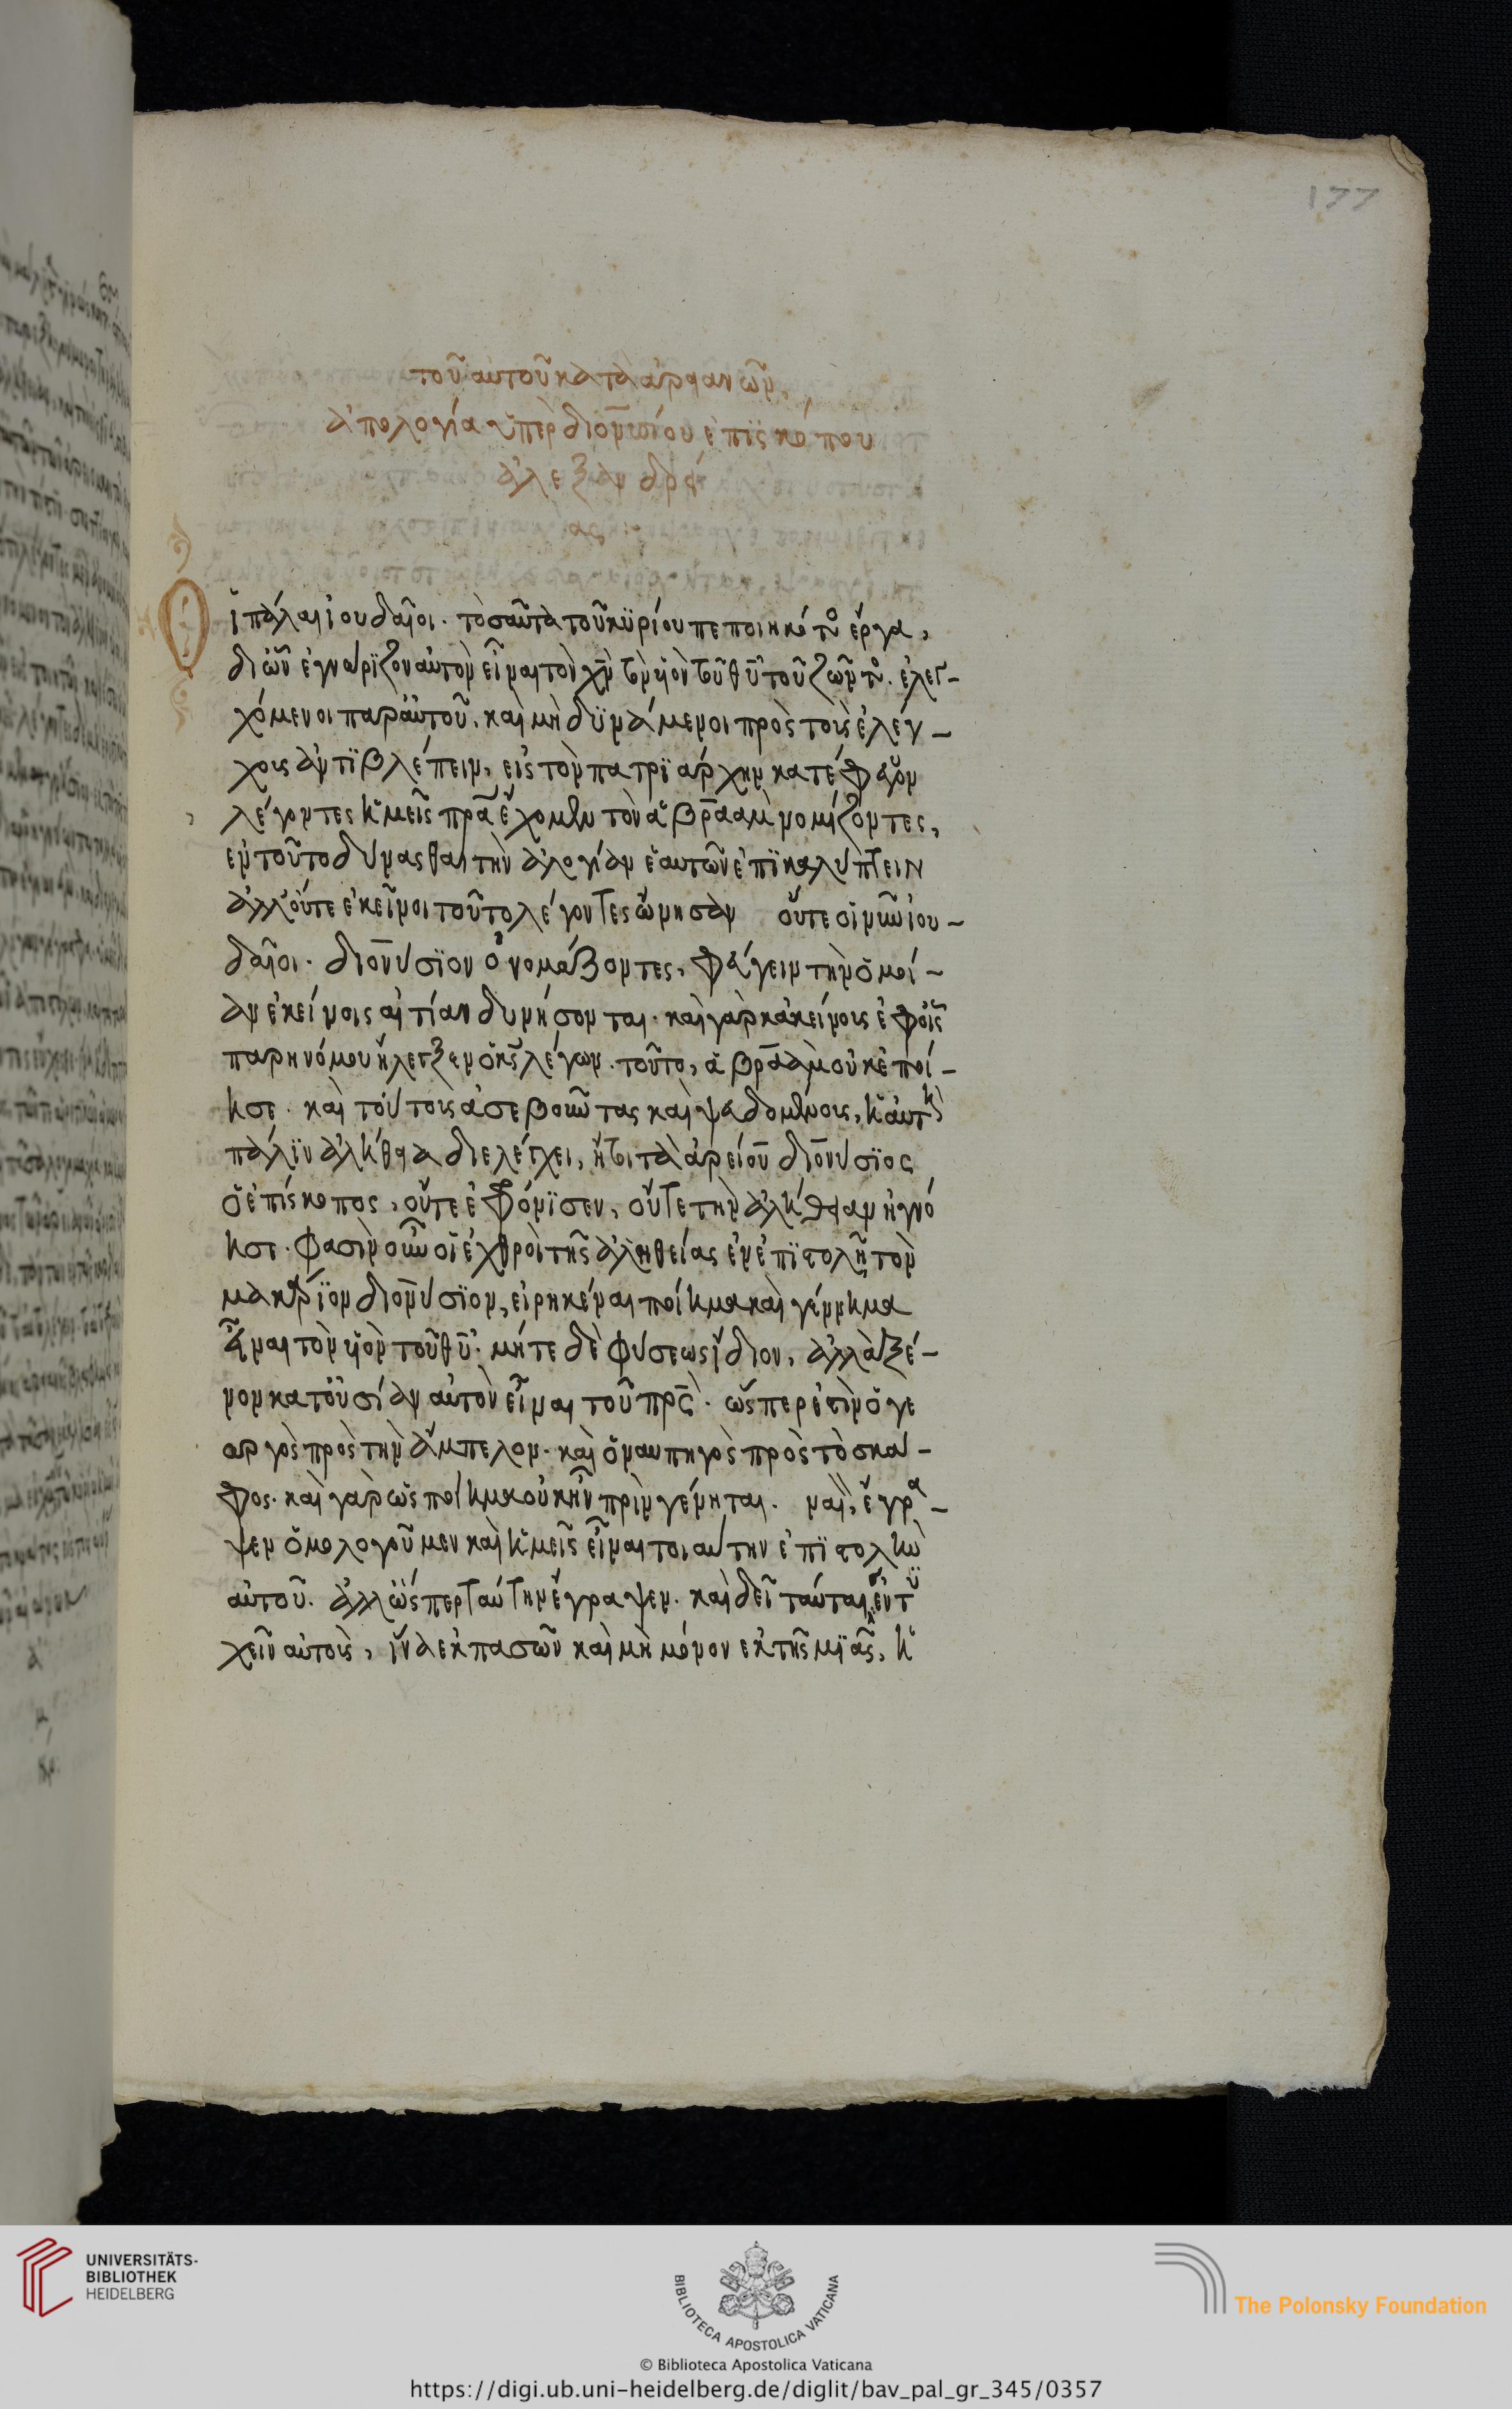 177
τοῦ αὐτοῦ κατὰ ἀρειανῶν,
ἀπολογία ὑπὲρ διονυσίου ἐπϊσκόπου
ἀλεξανδρεί
ας :
Οἱ πάλαι ἰουδαῖοι · τοσαῦτα τοῦ κϋρίου πεποιηκότ(ος) ἔργα,
δι ὧν ἐγνώρϊζον αὐτὸν εἶναι τὸν χν̄ τὸν υἱὸν τοῦ θῡ τοῦ ζῶντ(ος). ἐλεγ-
χόμενοι παρ αὐτοῦ. καὶ μὴ δϋνάμενοι πρὸς τοὺς ἐλέγ-
χους ἀντϊβλέπειν, εἰς τὸν πατρϊάρχην κατέφευγον
λέγοντες ἡμεῖς πρ̄α ἔχομεν τὸν ἀβραὰμ νομίζοντες,
ἐν τοῦτο δύνασθαι τὴν ἀλογίαν ἑαυτῶν ἐπϊκαλύπτειν
ἀλλ οὔτε ἐκεῖνοι τοῦτο λέγοντες ὤνησαν οὔτε οἱ νῦν ἰου-
δαῖοι · διονύσϊον ὀνομάζοντες, φεύγειν τὴν ὁμοί-
αν ἐκείνοις αἰτίαν δυνήσονται · καὶ γὰρ κἀκείνους ἐφ οἷς
παρηνόμουν ἤλεγξεν ὁ κς̄ λέγων. τοῦτο, ἀβραὰμ οὐκ ἐποί-
ησε · καὶ τούτους ἀσεβοῦντας καὶ ψευδομένους, ἡ αὐτὴ
πάλϊν ἀλήθεια διελέγχει, ἥτι τὰ ἀρείου διονύσϊος
ὁ ἐπίσκοπος, οὔτε ἐφρόνϊσεν, οὔτε τὴν ἀλήθειαν ἠγνό
ησε · φασὶν οὖν οἱ ἐχθροὶ τῆς ἀληθείας ἐν ἐπϊστολῇ τὸν
μακάρϊον διονύσϊον, εἰρηκέναι ποίημα καὶ γέννημα
εἶναι τὸν υἱὸν τοῦ θῡ · μήτε δὲ φύσεως ἴδιον, ἀλλὰ ξέ-
νον κατ οὐσίαν αὐτὸν εἶναι τοῦ πρς̄ · ὥσπερ ἐστὶν ὁ γε
ωργὸς πρὸς τὴν ἄμπελον · καὶ ὁ ναυπηγὸς πρὸς τὸ σκά-
φος · καὶ γὰρ ὡς ποίημα οὐκ ἦν πρὶν γένηται. ναὶ, ἔγρα-
ψεν ὁμολογοῦμεν καὶ ἡμεῖς εἶναι τοιαύτην ἐπϊστολὴν
αὐτοῦ. ἀλλ ὥσπερ ταύτην ἔγραψεν · καὶ δεῖ ταύταις ἐντϋ
χεῖν αὐτοὺς, ἵνα ἐκ πασῶν καὶ μὴ μόνον ἐκ τῆς μϊᾶς, ἡ
UNIVERSITÄTS-
BIBLIOTHEK
HEIDELBERG
BIBLIOTECA APOSTOLICA VATICANA
The Polonsky Foundation
© Biblioteca Apostolica Vaticana
https://digi.ub.uni-heidelberg.de/diglit/bav_pal_gr_345/0357